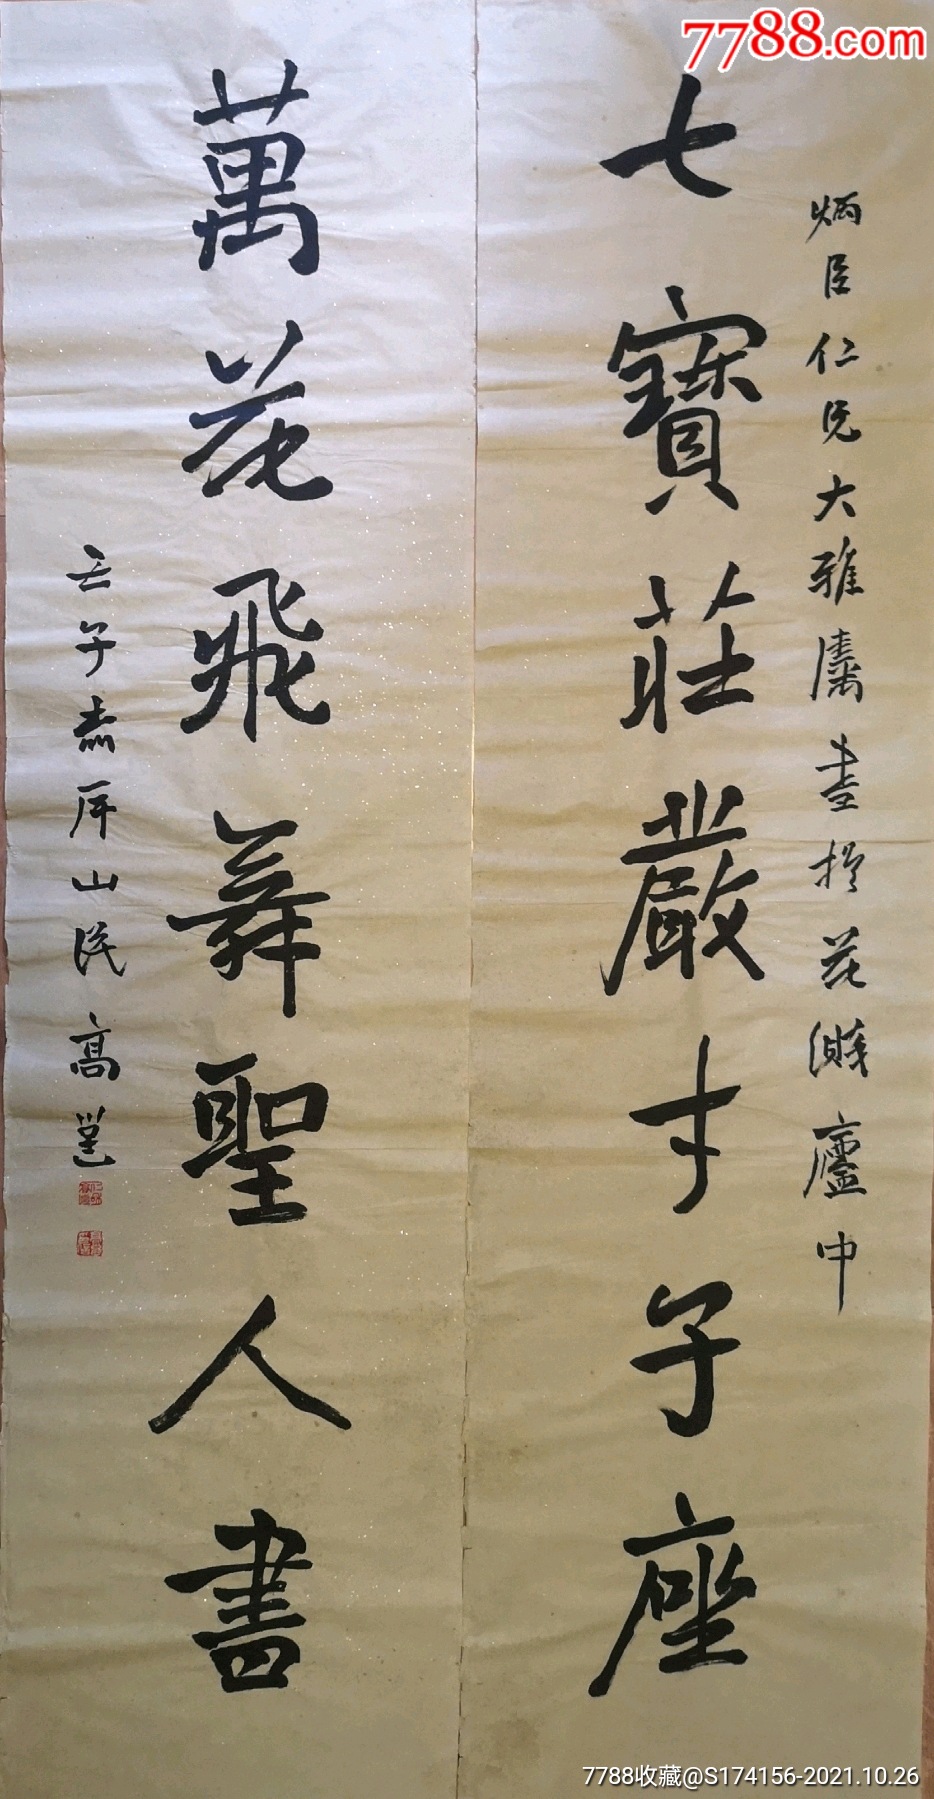 7788.com
炳臣仁兄大雅屬書於花溅廬中
七寶莊嚴才子座
萬花飛舞聖人書
壬子赤岸山民高邕
7788收藏@S174156-2021.10.26